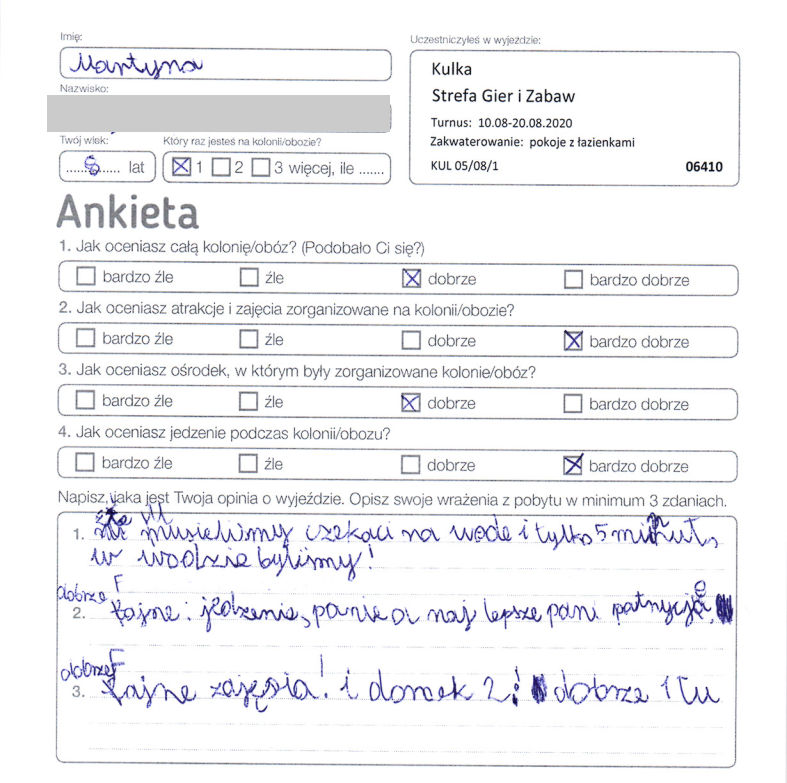 Imię:
Martyna
Nazwisko:
Twój wiek:
...... lat
Który raz jesteś na kolonii/obozie?
1 2 3 więcej, ile .......
Uczestniczyłeś w wyjeździe:
Kulka
Strefa Gier i Zabaw
Turnus: 10.08-20.08.2020
Zakwaterowanie: pokoje z łazienkami
KUL 05/08/1 06410
Ankieta
1. Jak oceniasz całą kolonię/obóz? (Podobało Ci się?)
bardzo źle źle dobrze bardzo dobrze
2. Jak oceniasz atrakcje i zajęcia zorganizowane na kolonii/obozie?
bardzo źle źle dobrze bardzo dobrze
3. Jak oceniasz ośrodek, w którym były zorganizowane kolonie/obóz?
bardzo źle źle dobrze bardzo dobrze
4. Jak oceniasz jedzenie podczas kolonii/obozu?
bardzo źle źle dobrze bardzo dobrze
Napisz, jaka jest Twoja opinia o wyjeździe. Opisz swoje wrażenia z pobytu w minimum 3 zdaniach.
1. źle musielimy czekaci na wode i tylko 5 minut,
w wodzie byliśmy!
dobrze F
2. fajne: jedzenie, panie a naj lepsze pani patrycja,
dobrze F
3. fajne zajęsia! i domek 2! dobrze 1 Tu